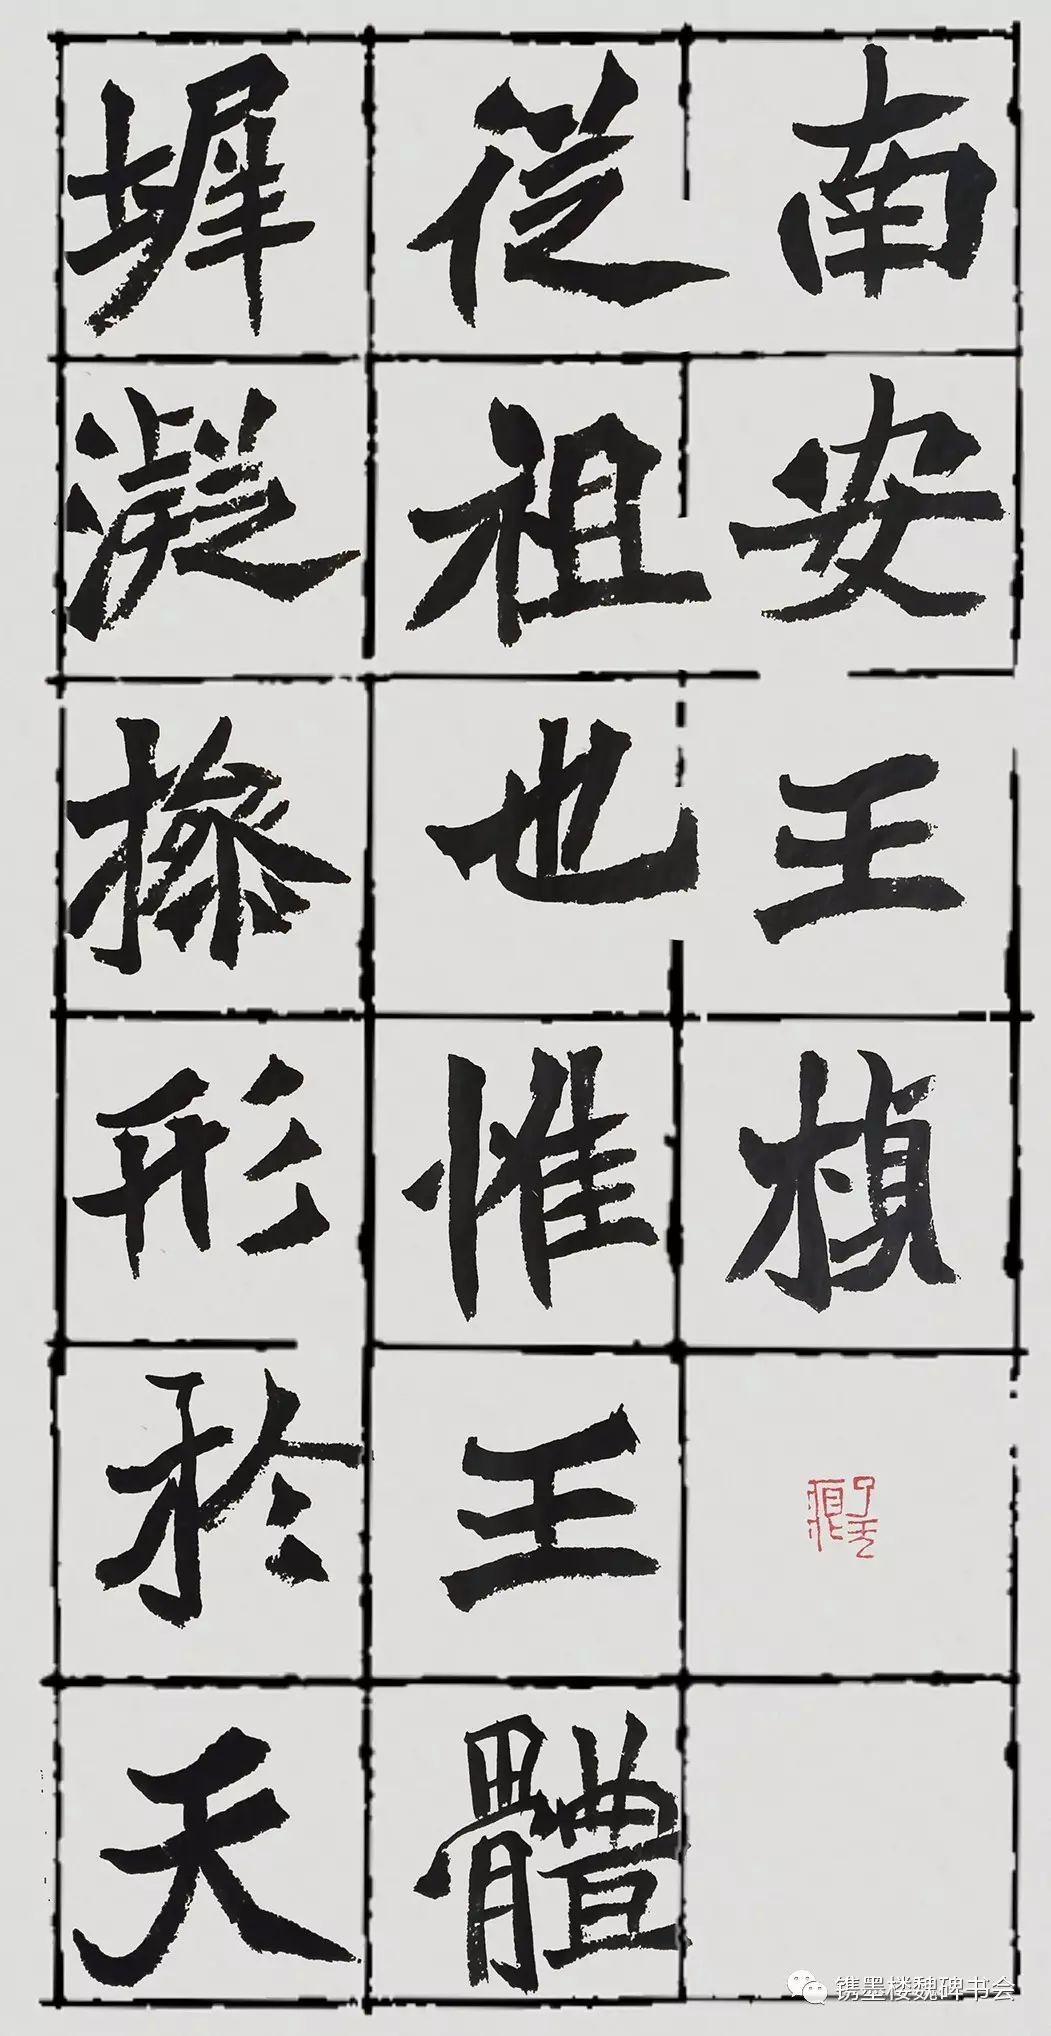 南安王楨
從祖也惟王體
墀凝操形於天
镌墨楼魏碑书会